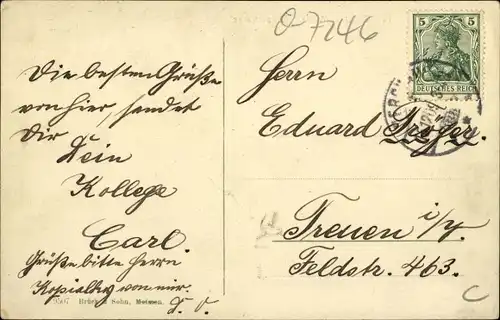 O-7246
5 5
DEUTSCHES REICH
Die besten Grüße
von hier, sendet
Dir
Dein
Kollege
Carl.
Grüße bitte Herrn
von mir.
D. O.
Brück & Sohn, Meissen.
Herrn
Eduard
Treuen i/V.
Feldstr. 463.